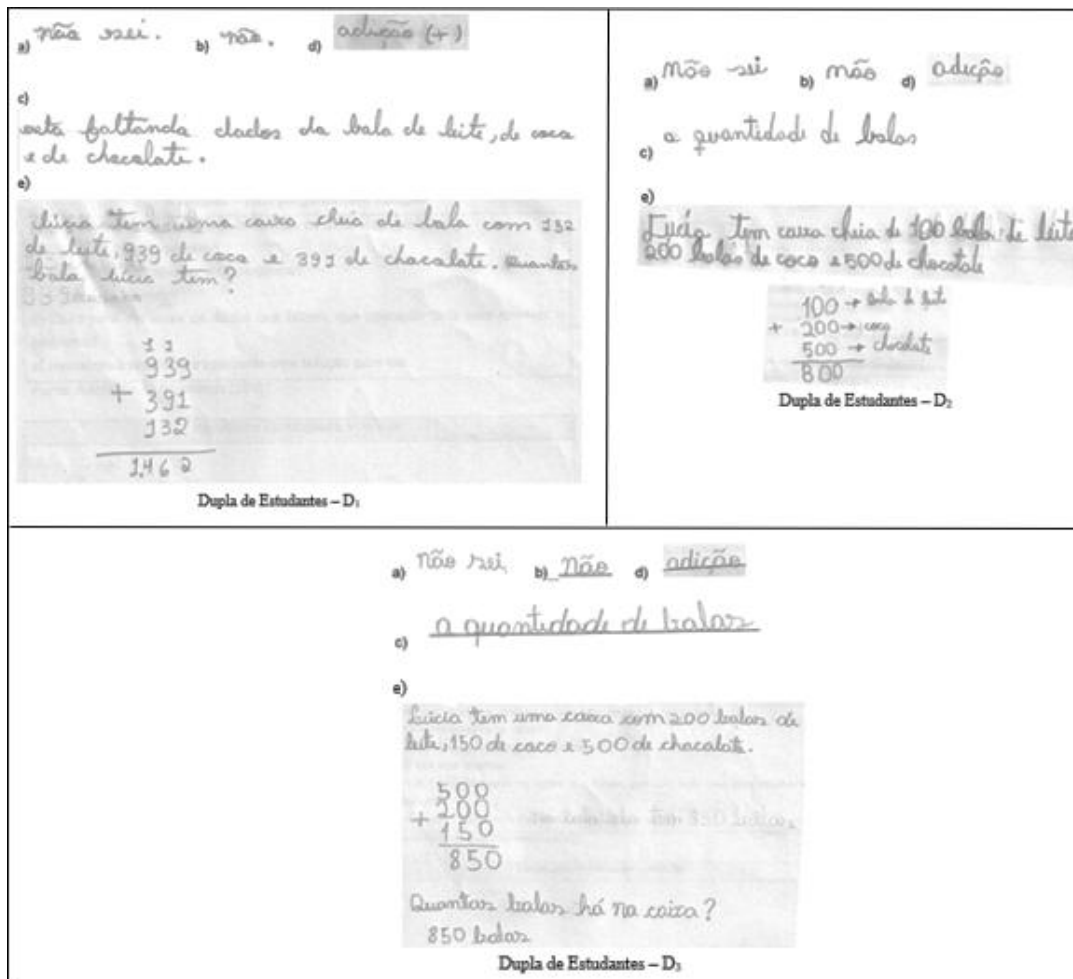 a) não sei. b) não. d) adição (+)
c)
está faltando dados da bala de leite, de coco
e de chocolate.
e)
Lúcia tem uma caixa cheia de bala com 132
de leite, 939 de coco e 391 de chacalate. Quantas
bala lúcia tem?
1 1
939
+ 391
132
1.462
Dupla de Estudantes – D₁
a) não sei b) não d) adição
c) a quantidade de balas
e)
Lúcia tem caixa cheia de 100 bala de leite
200 balas de coco e 500 de chocolate
100 → bala de leite
+ 200 → coco
500 → chocolate
800
Dupla de Estudantes – D₂
a) não sei b) não d) adição
c) a quantidade de balas
e)
Lúcia tem uma caixa com 200 balas de
leite, 150 de coco e 500 de chacalate.
500
+ 200
150
850
Quantas balas há na caixa?
850 balas
Dupla de Estudantes – D₃